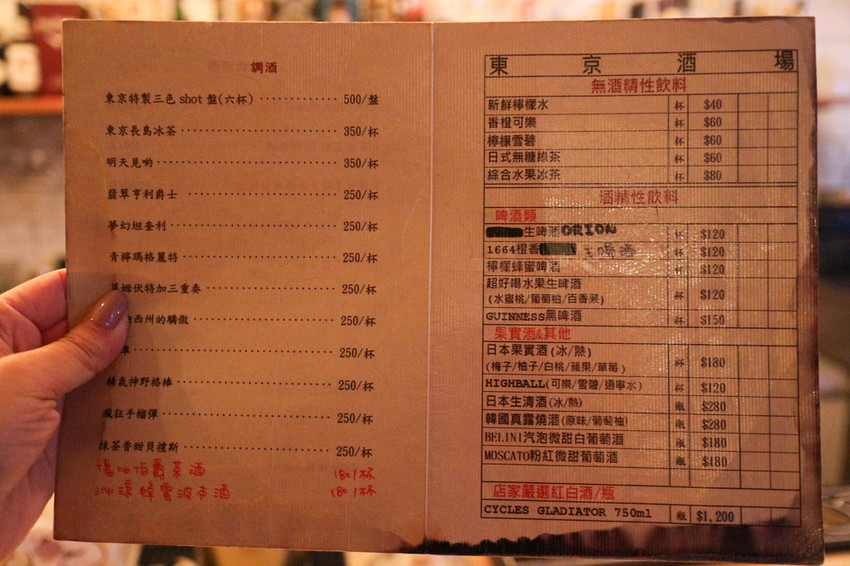 調酒
東京特製三色 shot 盤(六杯) ············ 500/盤
東京長島冰茶 ···················· 350/杯
明天見喲 ······················· 350/杯
翡翠亨利爵士 ···················· 250/杯
夢幻坦奎利 ····················· 250/杯
青檸瑪格麗特 ···················· 250/杯
姆伏特加三重奏 ··················· 250/杯
納西州的驕傲 ···················· 250/杯
車 ·························· 250/杯
精氣神野格棒 ···················· 250/杯
瘋狂手榴彈 ····················· 250/杯
抹茶香甜貝禮斯 ··················· 250/杯
伯爵茶酒 180/杯
蜂蜜波本酒 180/杯
東京酒場
無酒精性飲料
新鮮檸檬水 杯 $40
香橙可樂 杯 $60
檸檬雪碧 杯 $60
日式無糖綠茶 杯 $60
綜合水果冰茶 杯 $80
酒精性飲料
啤酒類
生啤酒ORION 杯 $120
1664橙香 生啤酒 杯 $120
檸檬蜂蜜啤酒 杯 $120
超好喝水果生啤酒
(水蜜桃/葡萄柚/百香果) 杯 $120
GUINNESS黑啤酒 杯 $150
果實酒&其他
日本果實酒(冰/熱)
(梅子/柚子/白桃/蘋果/草莓) 杯 $180
HIGHBALL(可樂/雪碧/通寧水) 杯 $120
日本生清酒(冰/熱) 瓶 $280
韓國真露燒酒(原味/葡萄柚) 瓶 $280
BELINI汽泡微甜白葡萄酒 瓶 $180
MOSCATO粉紅微甜葡萄酒 瓶 $180
店家嚴選紅白酒/瓶
CYCLES GLADIATOR 750ml 瓶 $1,200